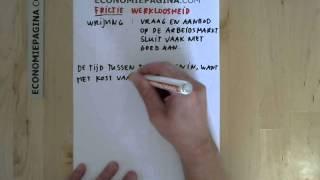 ECONOMIEPAGINA.COM
ECONOMIEPAGINA.COM
FRICTIE WERKLOOSHEID
WRIJVING : VRAAG EN AANBOD
OP DE ARBEIDSMARKT
SLUIT VAAK NIET
GOED AAN.
DE TIJD TUSSEN IN, WANT
HET KOST VA